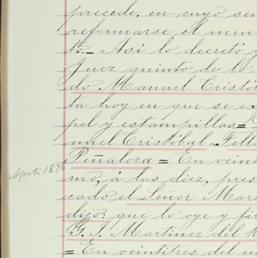 precede, en cuyo sen
reformarse el men
to.- Asi lo decretó y
Juez quinto de lo
do Manuel Cristób
ta hoy en que se ex
pel y estampillas.=
nuel Cristóbal Tello
Peñaloza = En veint
mo, á las diez, pres
cado el Señor Mar
dijo: que lo oye y fir
G. I. Martinez del R
= En veintitres del m
Agosto 1896